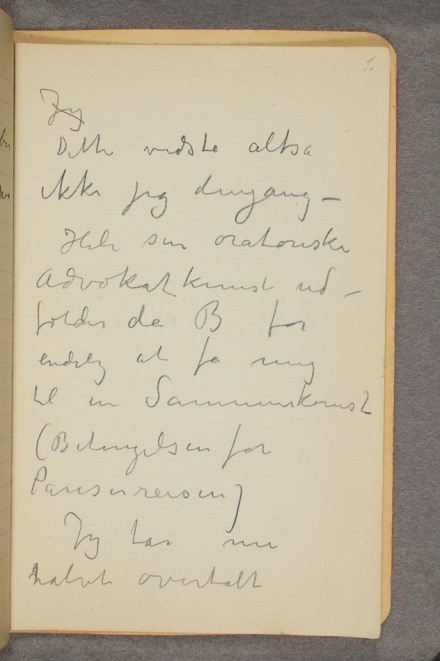 Jeg
Dette vidste altsa
ikke jeg dengang –
Hele sin oratoriske
Advokatkunst ud –
folder da B for
endelig at fa mig
til en Sammenkomst
(Betingelsen for
Pariserreisen)
Jeg har nu
halvt overtalt